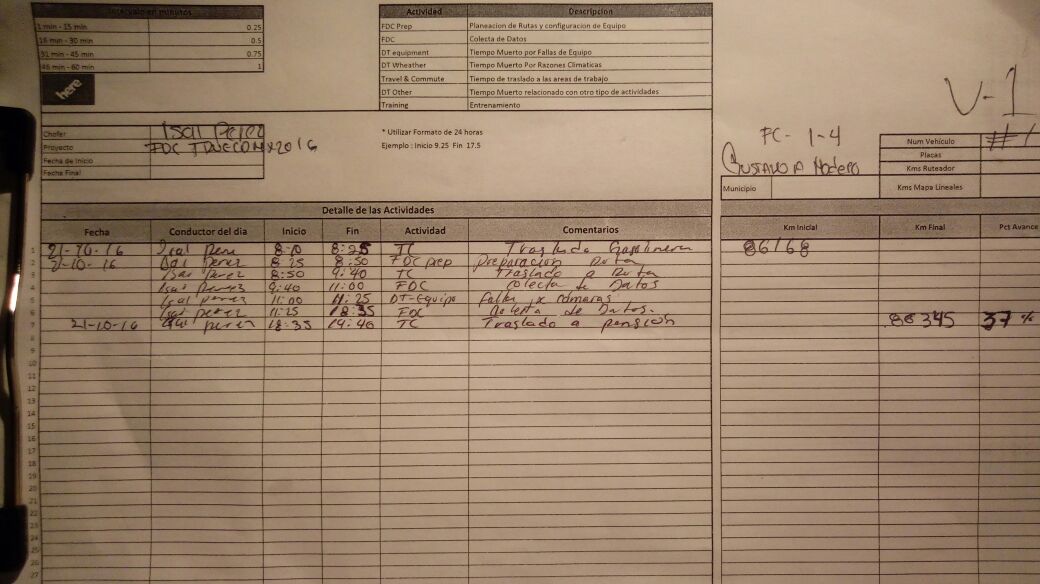 Intervalo en minutos
1 min - 15 min 0.25
16 min - 30 min 0.5
31 min - 45 min 0.75
46 min - 60 min 1
here
Actividad Descripcion
FDC Prep Planeacion de Rutas y configuracion de Equipo
FDC Colecta de Datos
DT equipment Tiempo Muerto por Fallas de Equipo
DT Wheather Tiempo Muerto Por Razones Climaticas
Travel & Commute Tiempo de traslado a las areas de trabajo
DT Other Tiempo Muerto relacionado con otro tipo de actividades
Training Entrenamiento
V-1
Chofer Isai Perez
Proyecto FDC
Fecha de Inicio
Fecha Final
* Utilizar Formato de 24 horas
Ejemplo : Inicio 9.25 Fin 17.5
FC- 1-4
Gustavo A Madero
Municipio
Num Vehículo #1
Placas
Kms Ruteador
Kms Mapa Lineales
Detalle de las Actividades
Fecha Conductor del dia Inicio Fin Actividad Comentarios Km Inicial Km Final Pct Avance
1 21-10-16 Isai Perez 8:10 8:25 TC Traslado Gasolinera 86168
2 21-10-16 Isai Perez 8:25 8:50 FDC prep Preparacion Ruta
3 Isai Perez 8:50 9:40 TC Traslado a Ruta
4 Isai Perez 9:40 11:00 FDC Colecta de Datos
5 Isai perez 11:00 11:25 DT-Equipo falla x camaras
6 Isai perez 11:25 18:35 FDC Colecta de Datos.
7 21-10-16 Isai perez 18:35 19:40 TC Traslado a pensión 86345 37 %
8
9
10
11
12
13
14
15
16
17
18
19
20
21
22
23
24
25
26
27